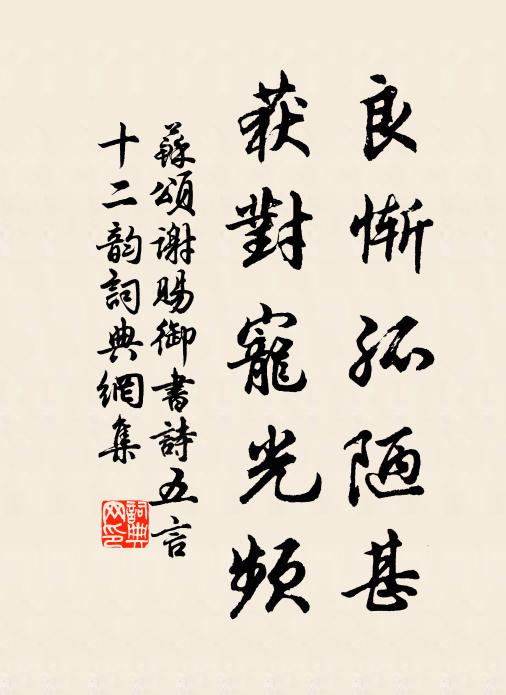 良慚孤陋甚
获對寵光頻
蘇頌謝賜御書詩五言
十二韵詞典網集
詞典
网印